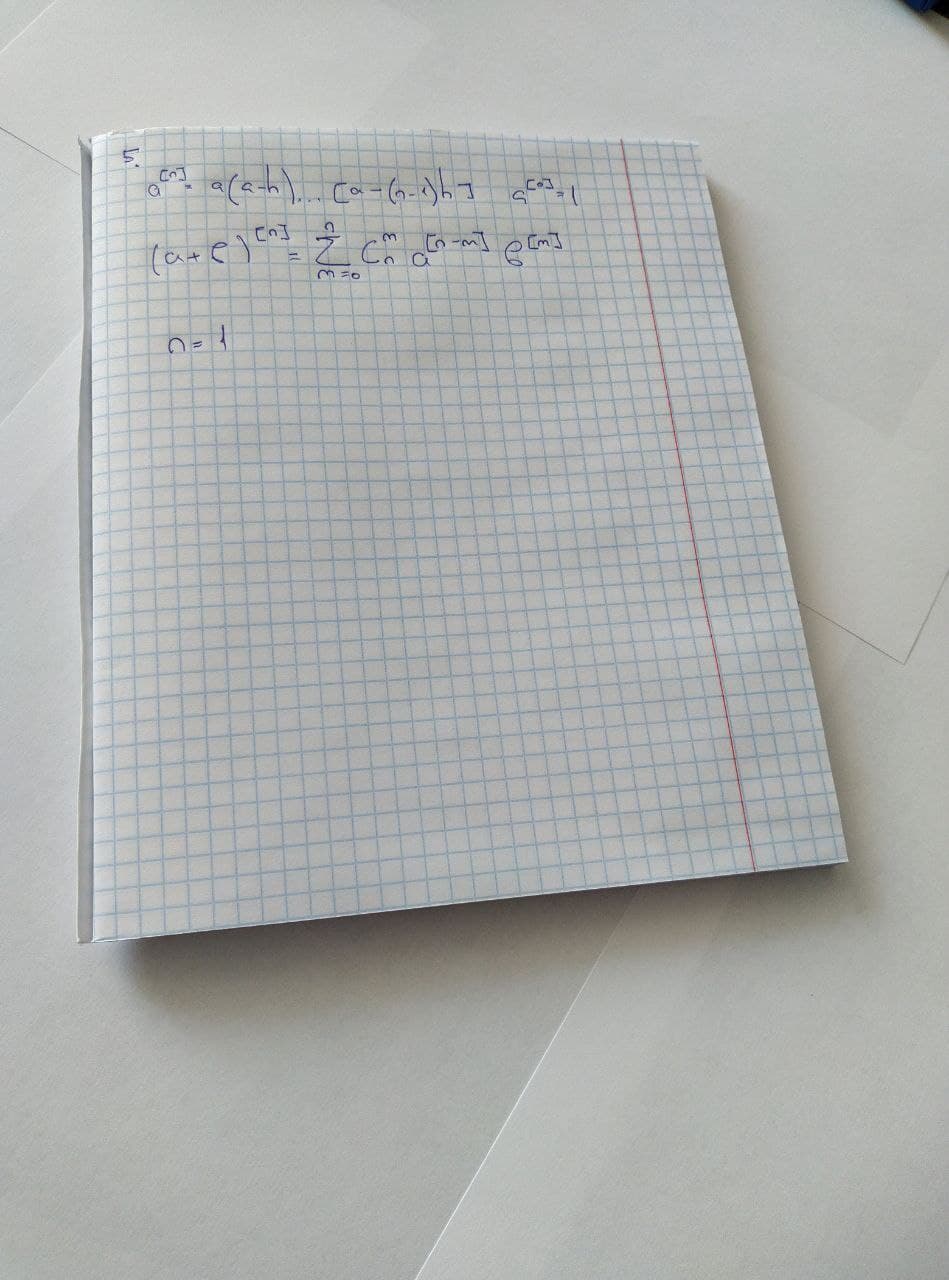 5.
a^[n] = a(a-h)...[a-(n-1)h] a^[0] = 1
(a+в)^[n] = Σ_{m=0}^{n} C_n^m a^[n-m] в^[m]
n = 1